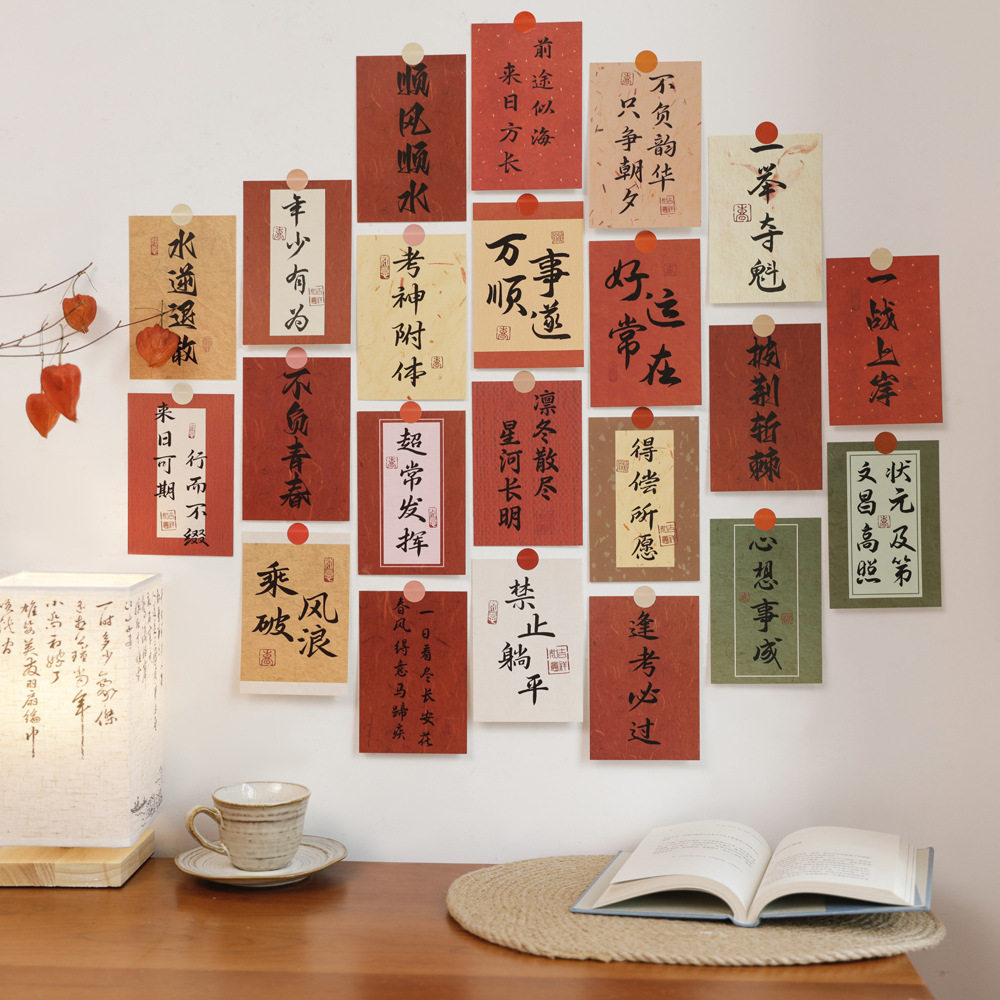 水逆退散
行而不缀
来日可期
年少有为
不负青春
乘
风
破
浪
顺风顺水
考神附体
超常发挥
一日看尽长安花
春风得意马蹄疾
前途似海
来日方长
事遂
万顺
凛冬散尽
星河长明
禁止
躺平
不负韵华
只争朝夕
好运
常在
得偿所愿
逢考必过
一举夺魁
披荆斩棘
心想事成
一战上岸
状元及第
文昌高照
一时多少豪杰
遥想公瑾当年
小乔初嫁了
雄姿英发羽扇纶巾